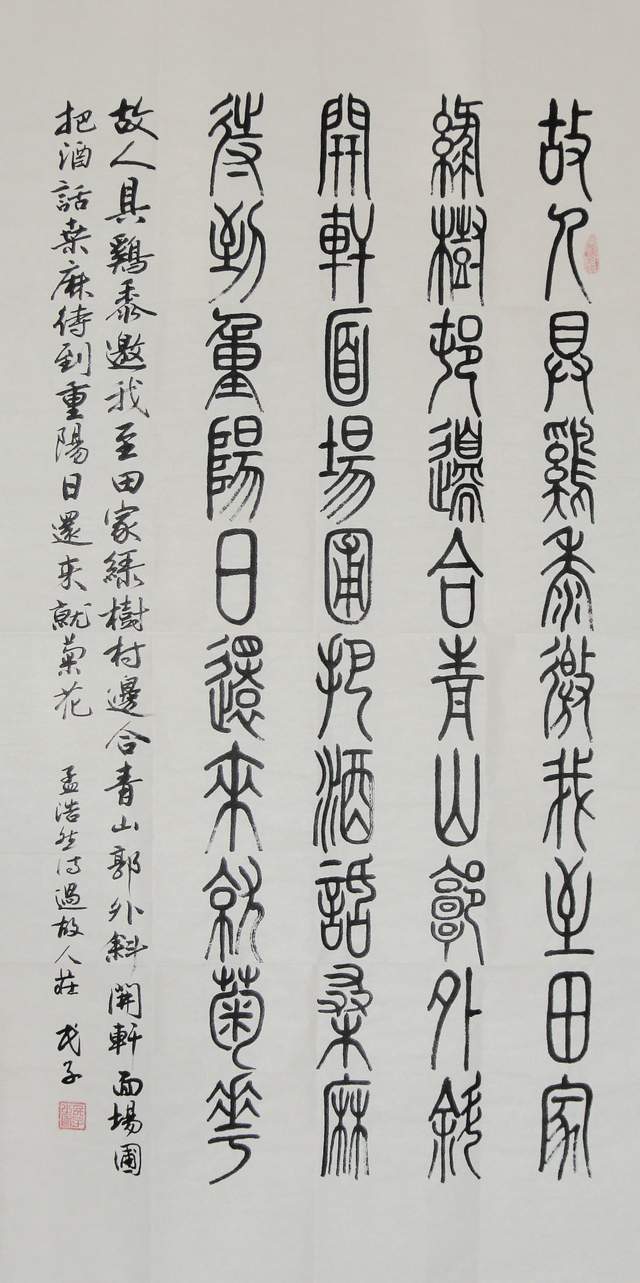 故人具鷄黍邀我至田家
綠樹邨邊合青山郭外斜
開軒面場圃把酒話桑麻
待到重陽日還來就菊花
故人具鷄黍邀我至田家綠樹村邊合青山郭外斜開軒面場圃
把酒話桑麻待到重陽日還來就菊花 孟浩然詩過故人莊